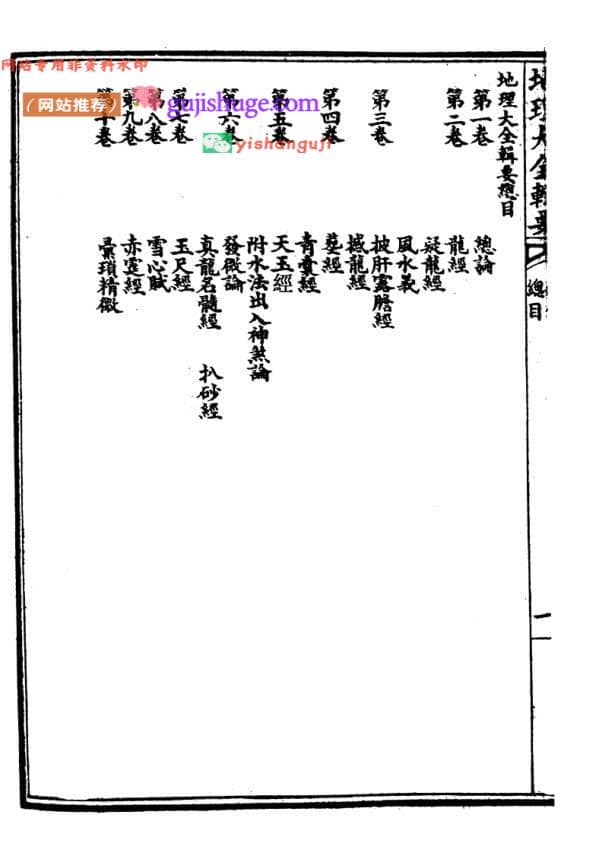 地理大全輯要
總目
一
地理大全輯要總目
第一卷 總論
第二卷 龍經
疑龍經
風水義
第三卷 披肝露膽經
撼龍經
第四卷 葬經
青囊經
第五卷 天玉經
附水法出入神煞論
第六卷 發微論
真龍名髓經 扒砂經
第七卷 玉尺經
第八卷 雪心賦
第九卷 赤霆經
第十卷 瑣精微
网站专用非资料水印
（网站推荐）
gujishuge.com
yishanguji